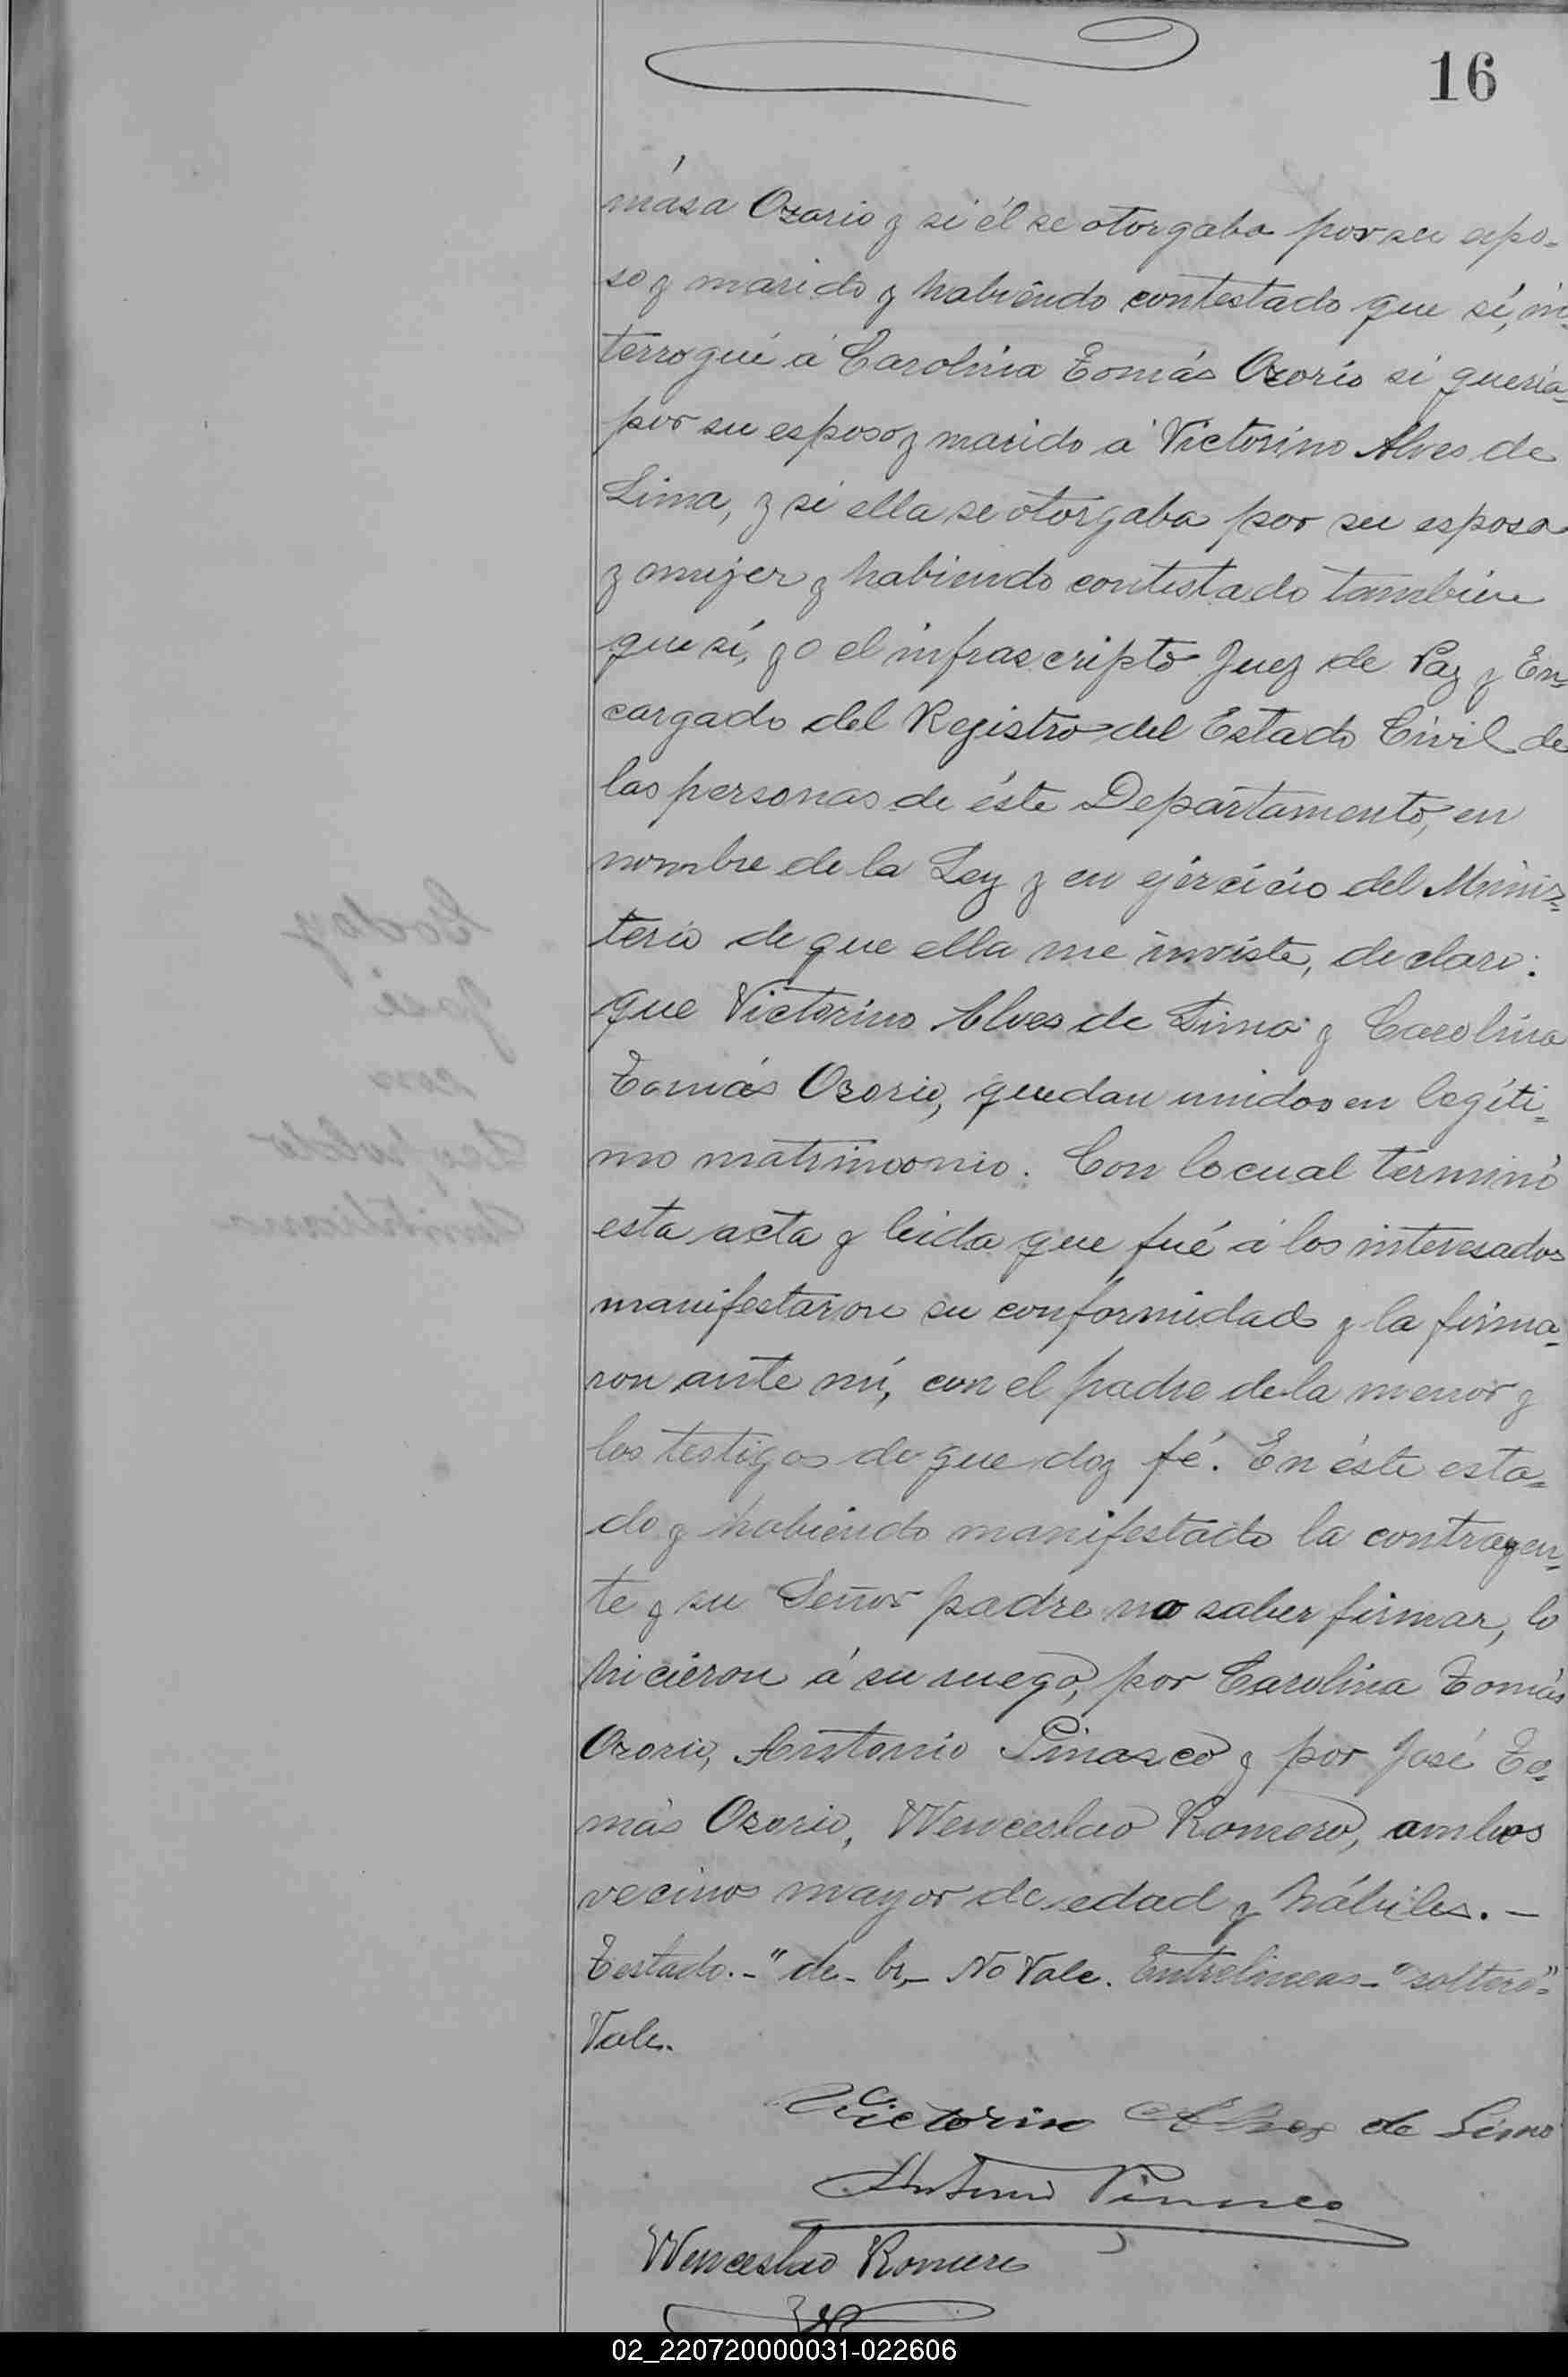 16
mása Ozorio y si él se otorgaba por su espo-
so y marido y habiendo contestado que sí, in-
terrogué á Carolina Tomás Ozorio si quería
por su esposo y marido á Victorino Alves de
Lima, y si ella se otorgaba por su esposa
y mujer y habiendo contestado tambien
que sí, yo el infrascripto Juez de Paz y En-
cargado del Registro del Estado Civil de
las personas de éste Departamento, en
nombre de la Ley y en ejercicio del Minis-
terio de que ella me inviste, declaro:
que Victorino Alves de Lima y Carolina
Tomás Ozorio, quedan unidos en legíti-
mo matrimonio. Con lo cual terminó
esta acta y leida que fué á los interesados
manifestaron su conformidad y la firma-
ron ante mí, con el padre de la menor y
los testigos de que doy fé. En éste esta-
do y habiendo manifestado la contrayen-
te y su Señor padre no saber firmar, lo
hicieron á su ruego, por Carolina Tomás
Ozorio, Antonio Pinasco y por José To-
más Ozorio, Wenceslao Romero, ambos
vecinos mayor de edad y hábiles. —
Testado.-"de- No Vale. Entrelineas-"soltero"-
Vale.
Victorino Alves de Lima
Antonio Pinasco
Wenceslao Romero
02_220720000031-022606